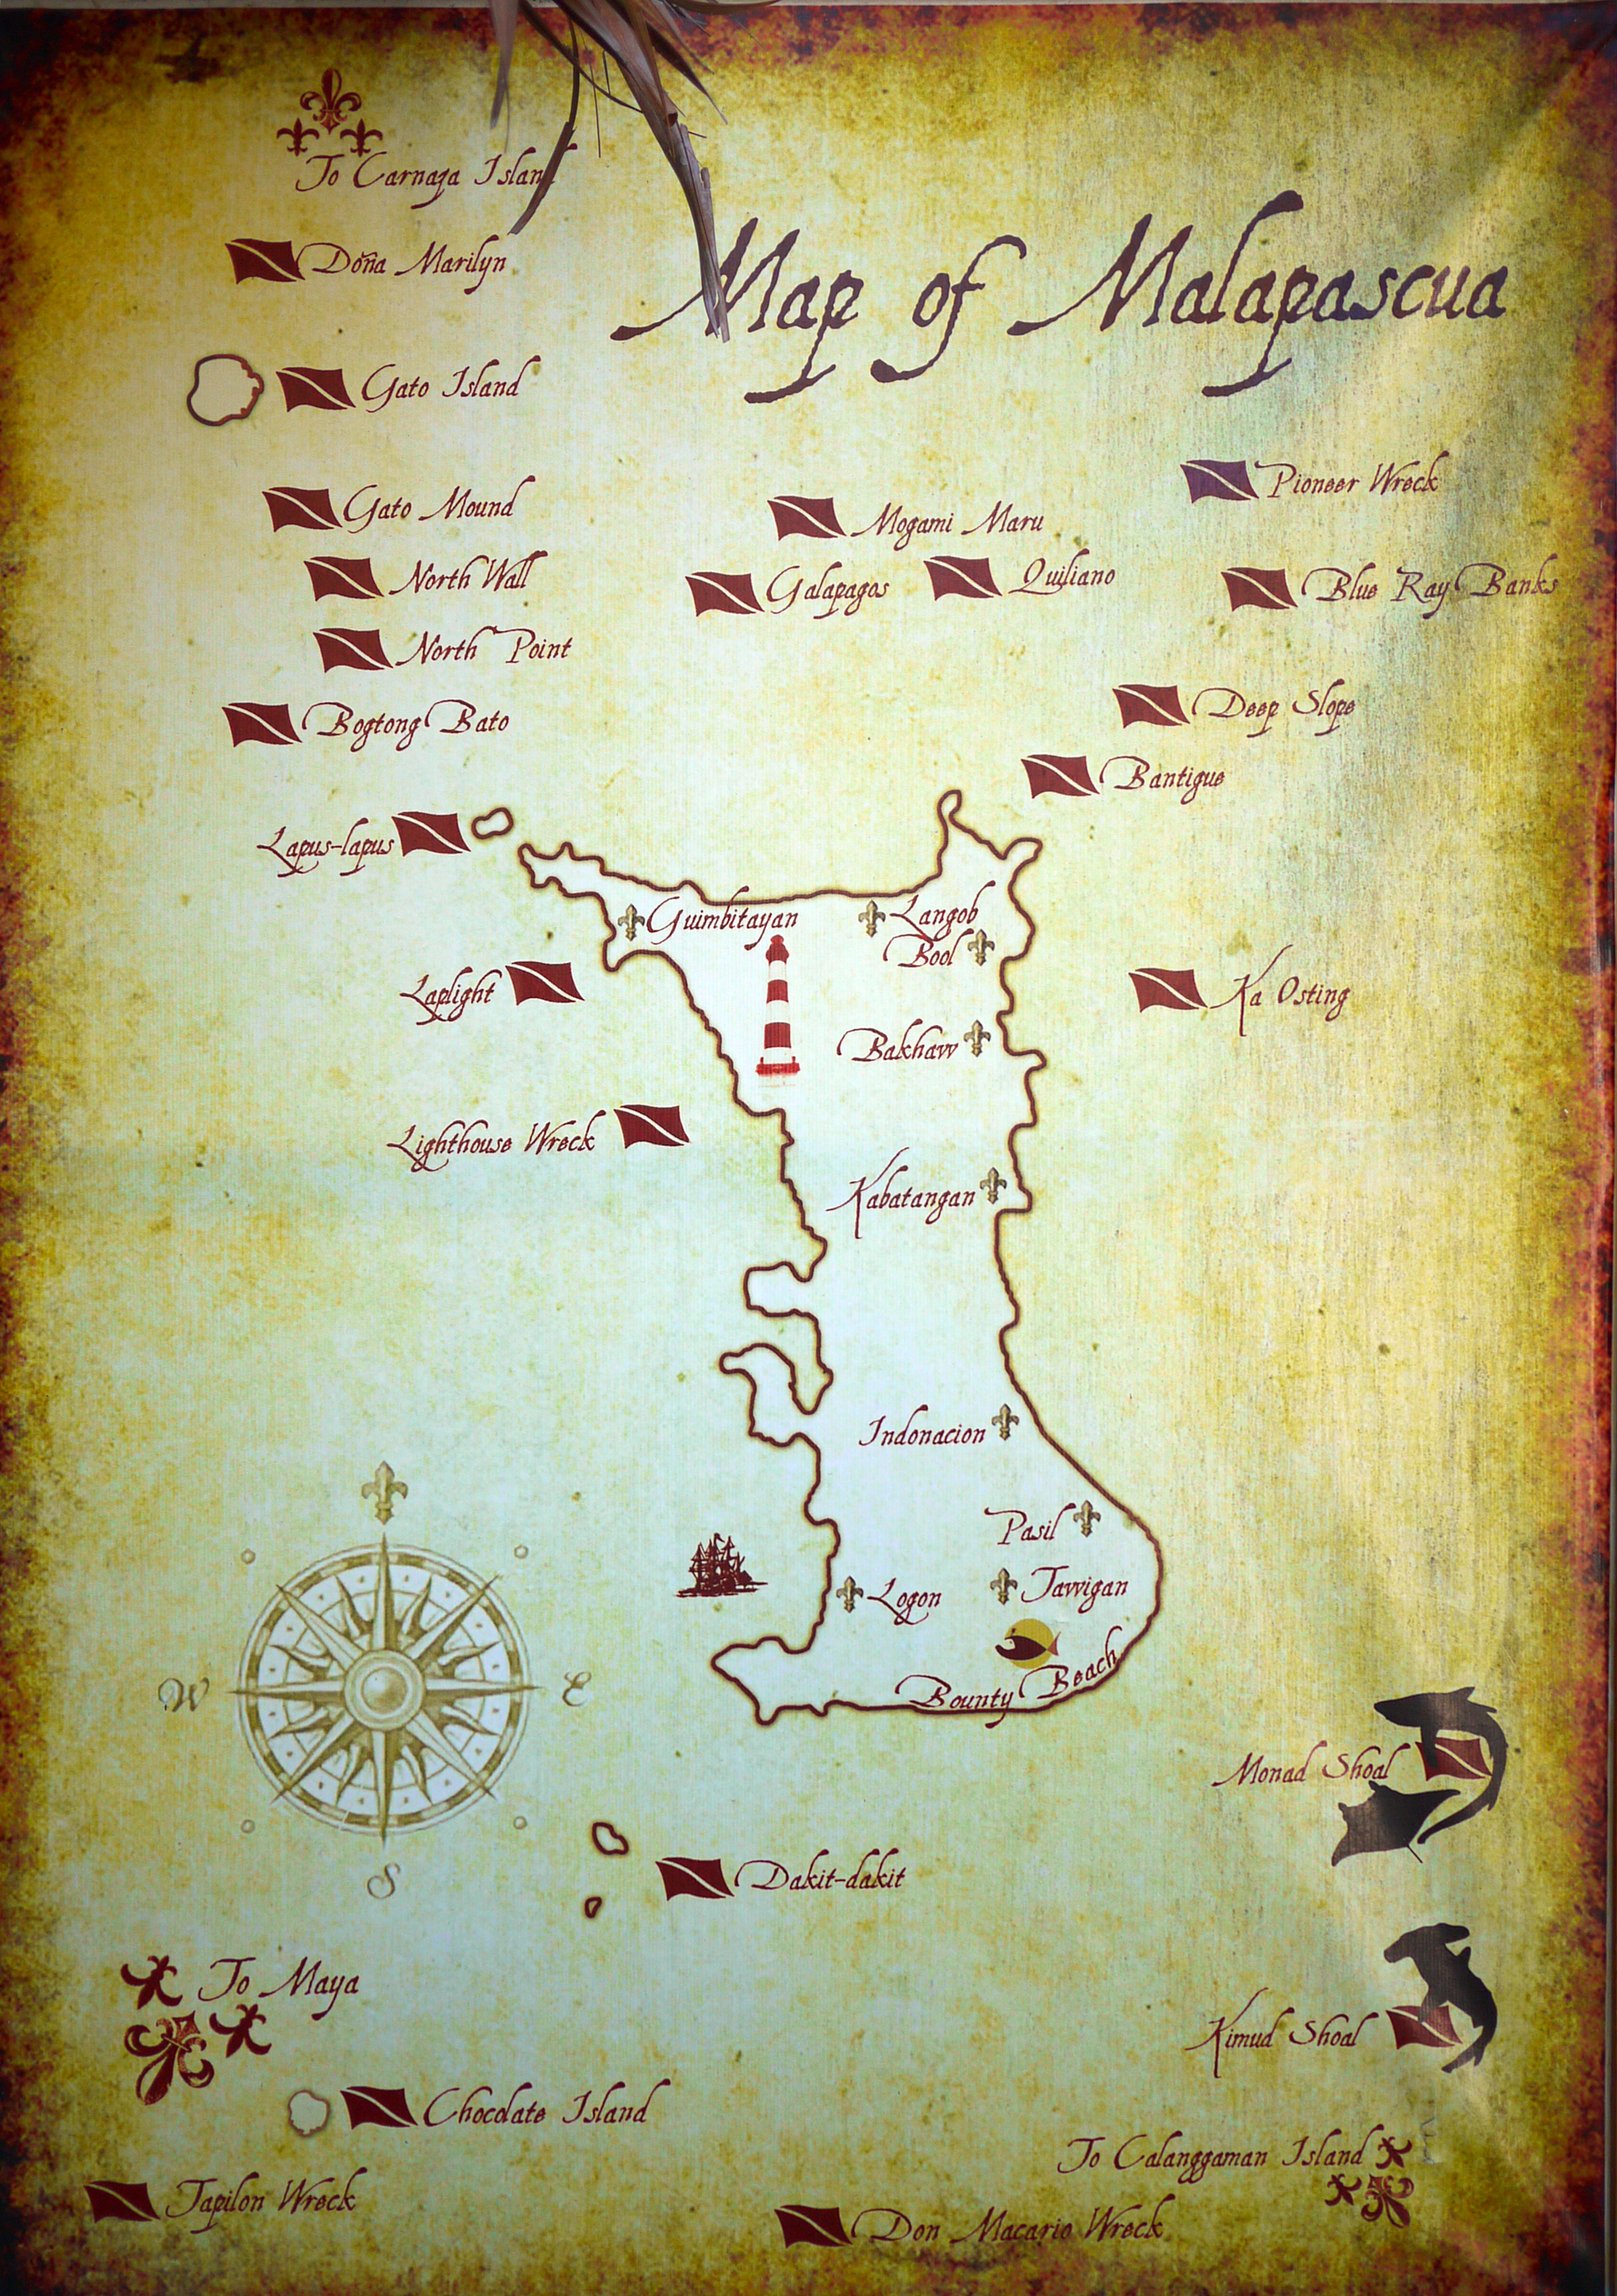 To Carnaza Island
Doña Marilyn
Map of Malapascua
Gato Island
Pioneer Wreck
Gato Mound
Mogami Maru
North Wall
Galapagos
Quiliano
Blue Ray Banks
North Point
Bogtong Bato
Deep Slope
Bantigue
Lapus-lapus
Guimbitayan
Langob
Bool
Laplight
Ka Osting
Bakhaw
Lighthouse Wreck
Kabatangan
Indonacion
Pasil
Logon
Tawigan
Bounty Beach
W
E
S
Monad Shoal
Dakit-dakit
To Maya
Kimud Shoal
Chocolate Island
To Calanggaman Island
Tapilon Wreck
Don Macario Wreck